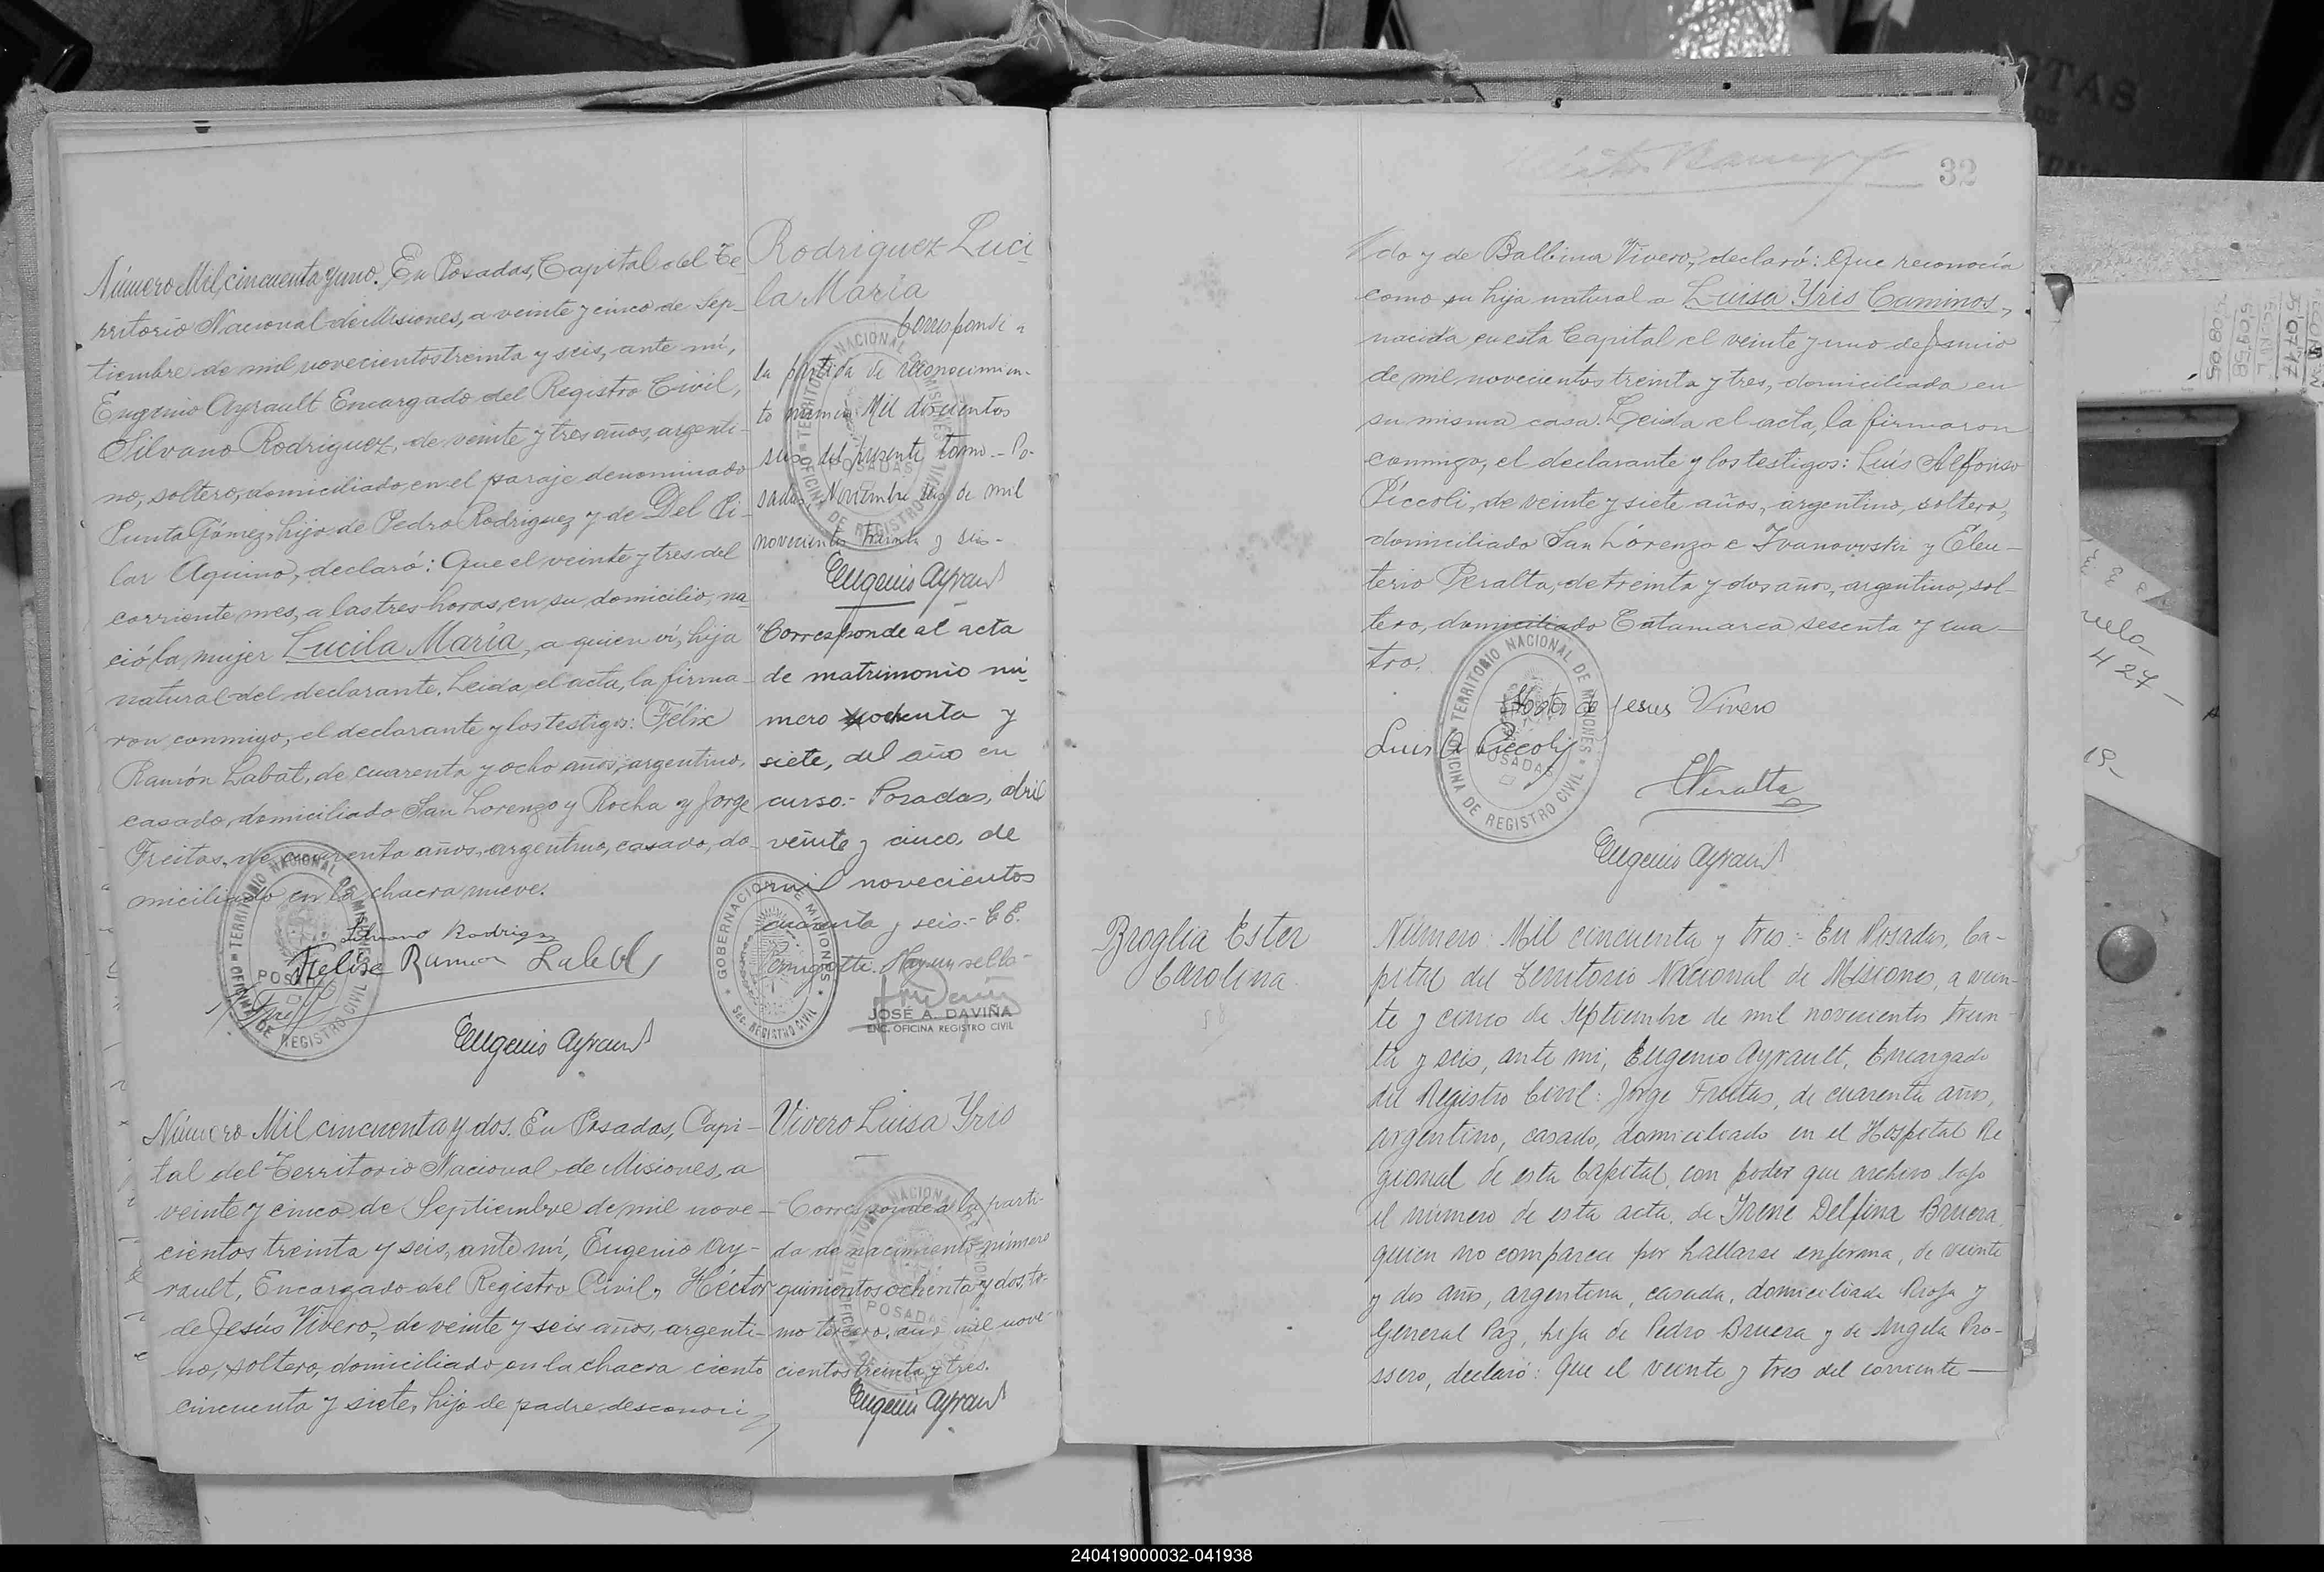 Número Mil cincuenta y uno. En Posadas, Capital del Te-
rritorio Nacional de Misiones, a veinte y cinco de Sep-
tiembre de mil novecientos treinta y seis, ante mí,
Eugenio Ayrault Encargado del Registro Civil,
Silvano Rodriguez, de veinte y tres años, argenti-
no, soltero, domiciliado en el paraje denominado
Punta Gómez, hijo de Pedro Rodriguez y de Del Pi-
lar Aquino, declaró: Que el veinte y tres del
corriente mes, a las tres horas, en su domicilio, na-
ció la mujer Lucila María, a quien ví, hija
natural del declarante. Leida el acta, la firma-
ron conmigo, el declarante y los testigos: Félix
Ramón Labat, de cuarenta y ocho años, argentino,
casado, domiciliado San Lorenzo y Rocha y Jorge
Freitas, de cuarenta años, argentino, casado, do-
miciliado en la chacra nueve.
Silvano Rodrigz
Felix Ramon Labat
Eugenio Ayrault
Rodriguez Luci
la María
Corresponde a
la partida de reconocimien-
to número Mil doscientos
seis del presente tomo. - Po-
sadas, Noviembre seis de mil
novecientos treinta y seis-
Eugenio Ayrault
"Corresponde al acta
de matrimonio nú-
mero ochenta y
siete, del año en
curso.- Posadas, abril
veinte y cinco, de
mil novecientos
cuarenta y seis.-
Hay un sello-
JOSÉ A. DAVIÑA
ENC. OFICINA REGISTRO CIVIL
TERRITORIO NACIONAL DE MISIONES
POSADAS
OFICINA DE REGISTRO CIVIL
GOBERNACION DE MISIONES
SEC. REGISTRO CIVIL
Número Mil cincuenta y dos. En Posadas, Capi-
tal del Territorio Nacional de Misiones, a
veinte y cinco de Septiembre de mil nove-
cientos treinta y seis, ante mí, Eugenio Ay-
rault, Encargado del Registro Civil, Héctor
de Jesús Vivero, de veinte y seis años, argenti-
no, soltero, domiciliado en la chacra ciento
cincuenta y siete, hijo de padre desconoci
Vivero Luisa Yris
Corresponde a la parti-
da de nacimiento número
quinientos ochenta y dos, to-
mo tercero, año mil nove-
cientos treinta y tres.
Eugenio Ayrault
32
do y de Balbina Vivero, declaró: Que reconocía
como su hija natural a Luisa Yris Caminos,
nacida en esta Capital el veinte y uno de Junio
de mil novecientos treinta y tres, domiciliada en
su misma casa. Leida el acta, la firmaron
conmigo, el declarante y los testigos: Luís Alfonso
Píccoli, de veinte y siete años, argentino, soltero,
domiciliado San Lórenzo e Ivanovoski y Eleu-
terio Peralta, de treinta y dos años, argentino, sol-
tero, domiciliado Catamarca sesenta y cua-
tro.
TERRITORIO NACIONAL DE MISIONES
POSADAS
OFICINA DE REGISTRO CIVIL
Hector de Jesus Vivero
Luis A Piccoli
EPeralta
Eugenio Ayrault
Broglia Ester
Carolina
Número Mil cincuenta y tres:- En Posadas, Ca-
pital del Territorio Nacional de Misiones, a vein-
te y cinco de Septiembre de mil novecientos trein-
ta y seis, ante mi, Eugenio Ayrault, Encargado
del Registro Civil: Jorge Freitas, de cuarenta años,
argentino, casado, domiciliado en el Hospital Re
gional de esta Capital, con poder que archivo bajo
el número de esta acta, de Irene Delfina Bruera,
quien no comparece por hallarse enferma, de veinte
y dos años, argentina, casada, domiciliada Rioja y
General Paz, hija de Pedro Bruera y de Angela Pro-
ssero, declaró: Que el veinte y tres del corriente-
427
240419000032-041938